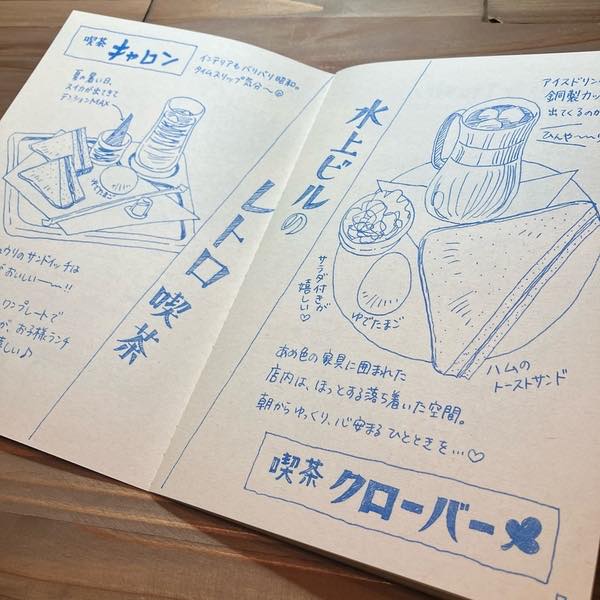 喫茶 キャロン
インテリアもバリバリ昭和。
タイムスリップ気分〜☺
夏の暑い日、
スイカが出てきて
テンションMAX
ゆでたまご
ュウリのサンドイッチは
がおいしいー〜!!
ワンプレートで
が、お子様ランチ
楽しい♪
水上ビルの
レトロ喫茶
アイスドリン
銅製カッ
出てくるのが
ひんや〜〜
サラダ付きが
嬉しい♡
ゆでたまご
ハムの
トーストサンド
あめ色の家具に囲まれた
店内は、ほっとする落ち着いた空間。
朝からゆっくり、心安まるひとときを…♡
喫茶 クローバー